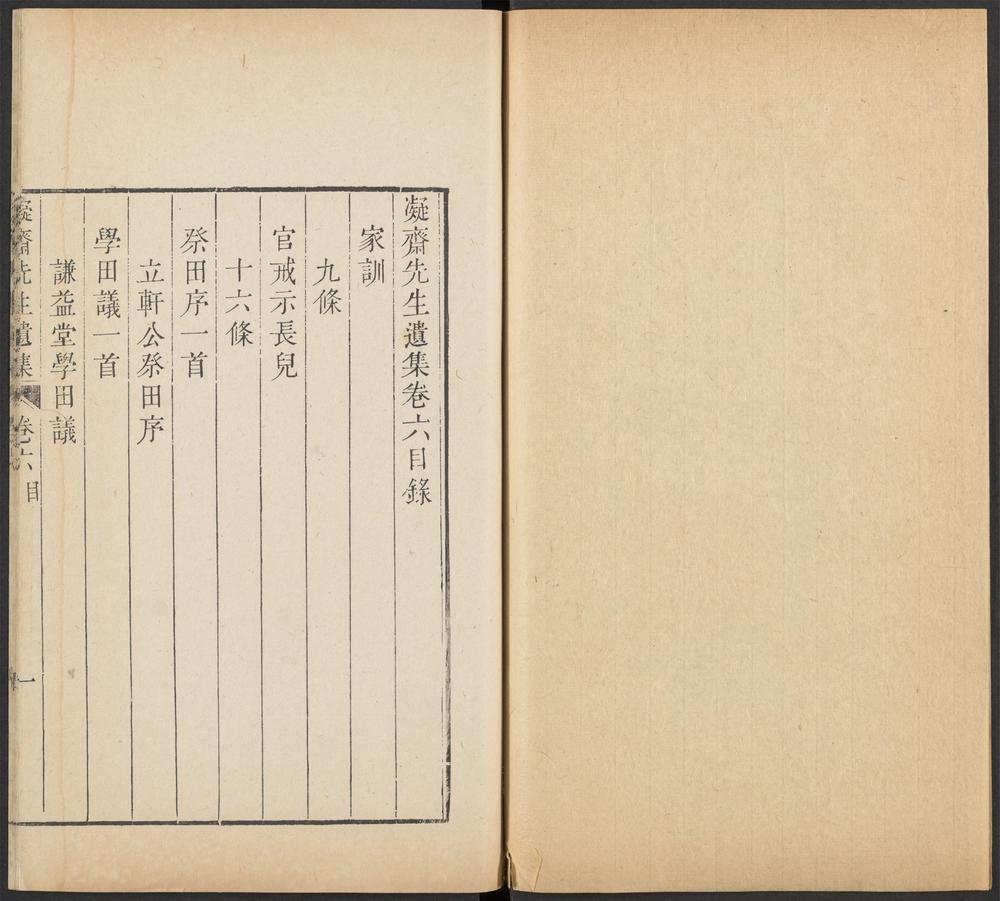 凝齋先生遺集卷六目錄
家訓
九條
官戒示長兒
十六條
祭田序一首
立軒公祭田序
學田議一首
謙益堂學田議
凝齋先生遺集 卷六目 一